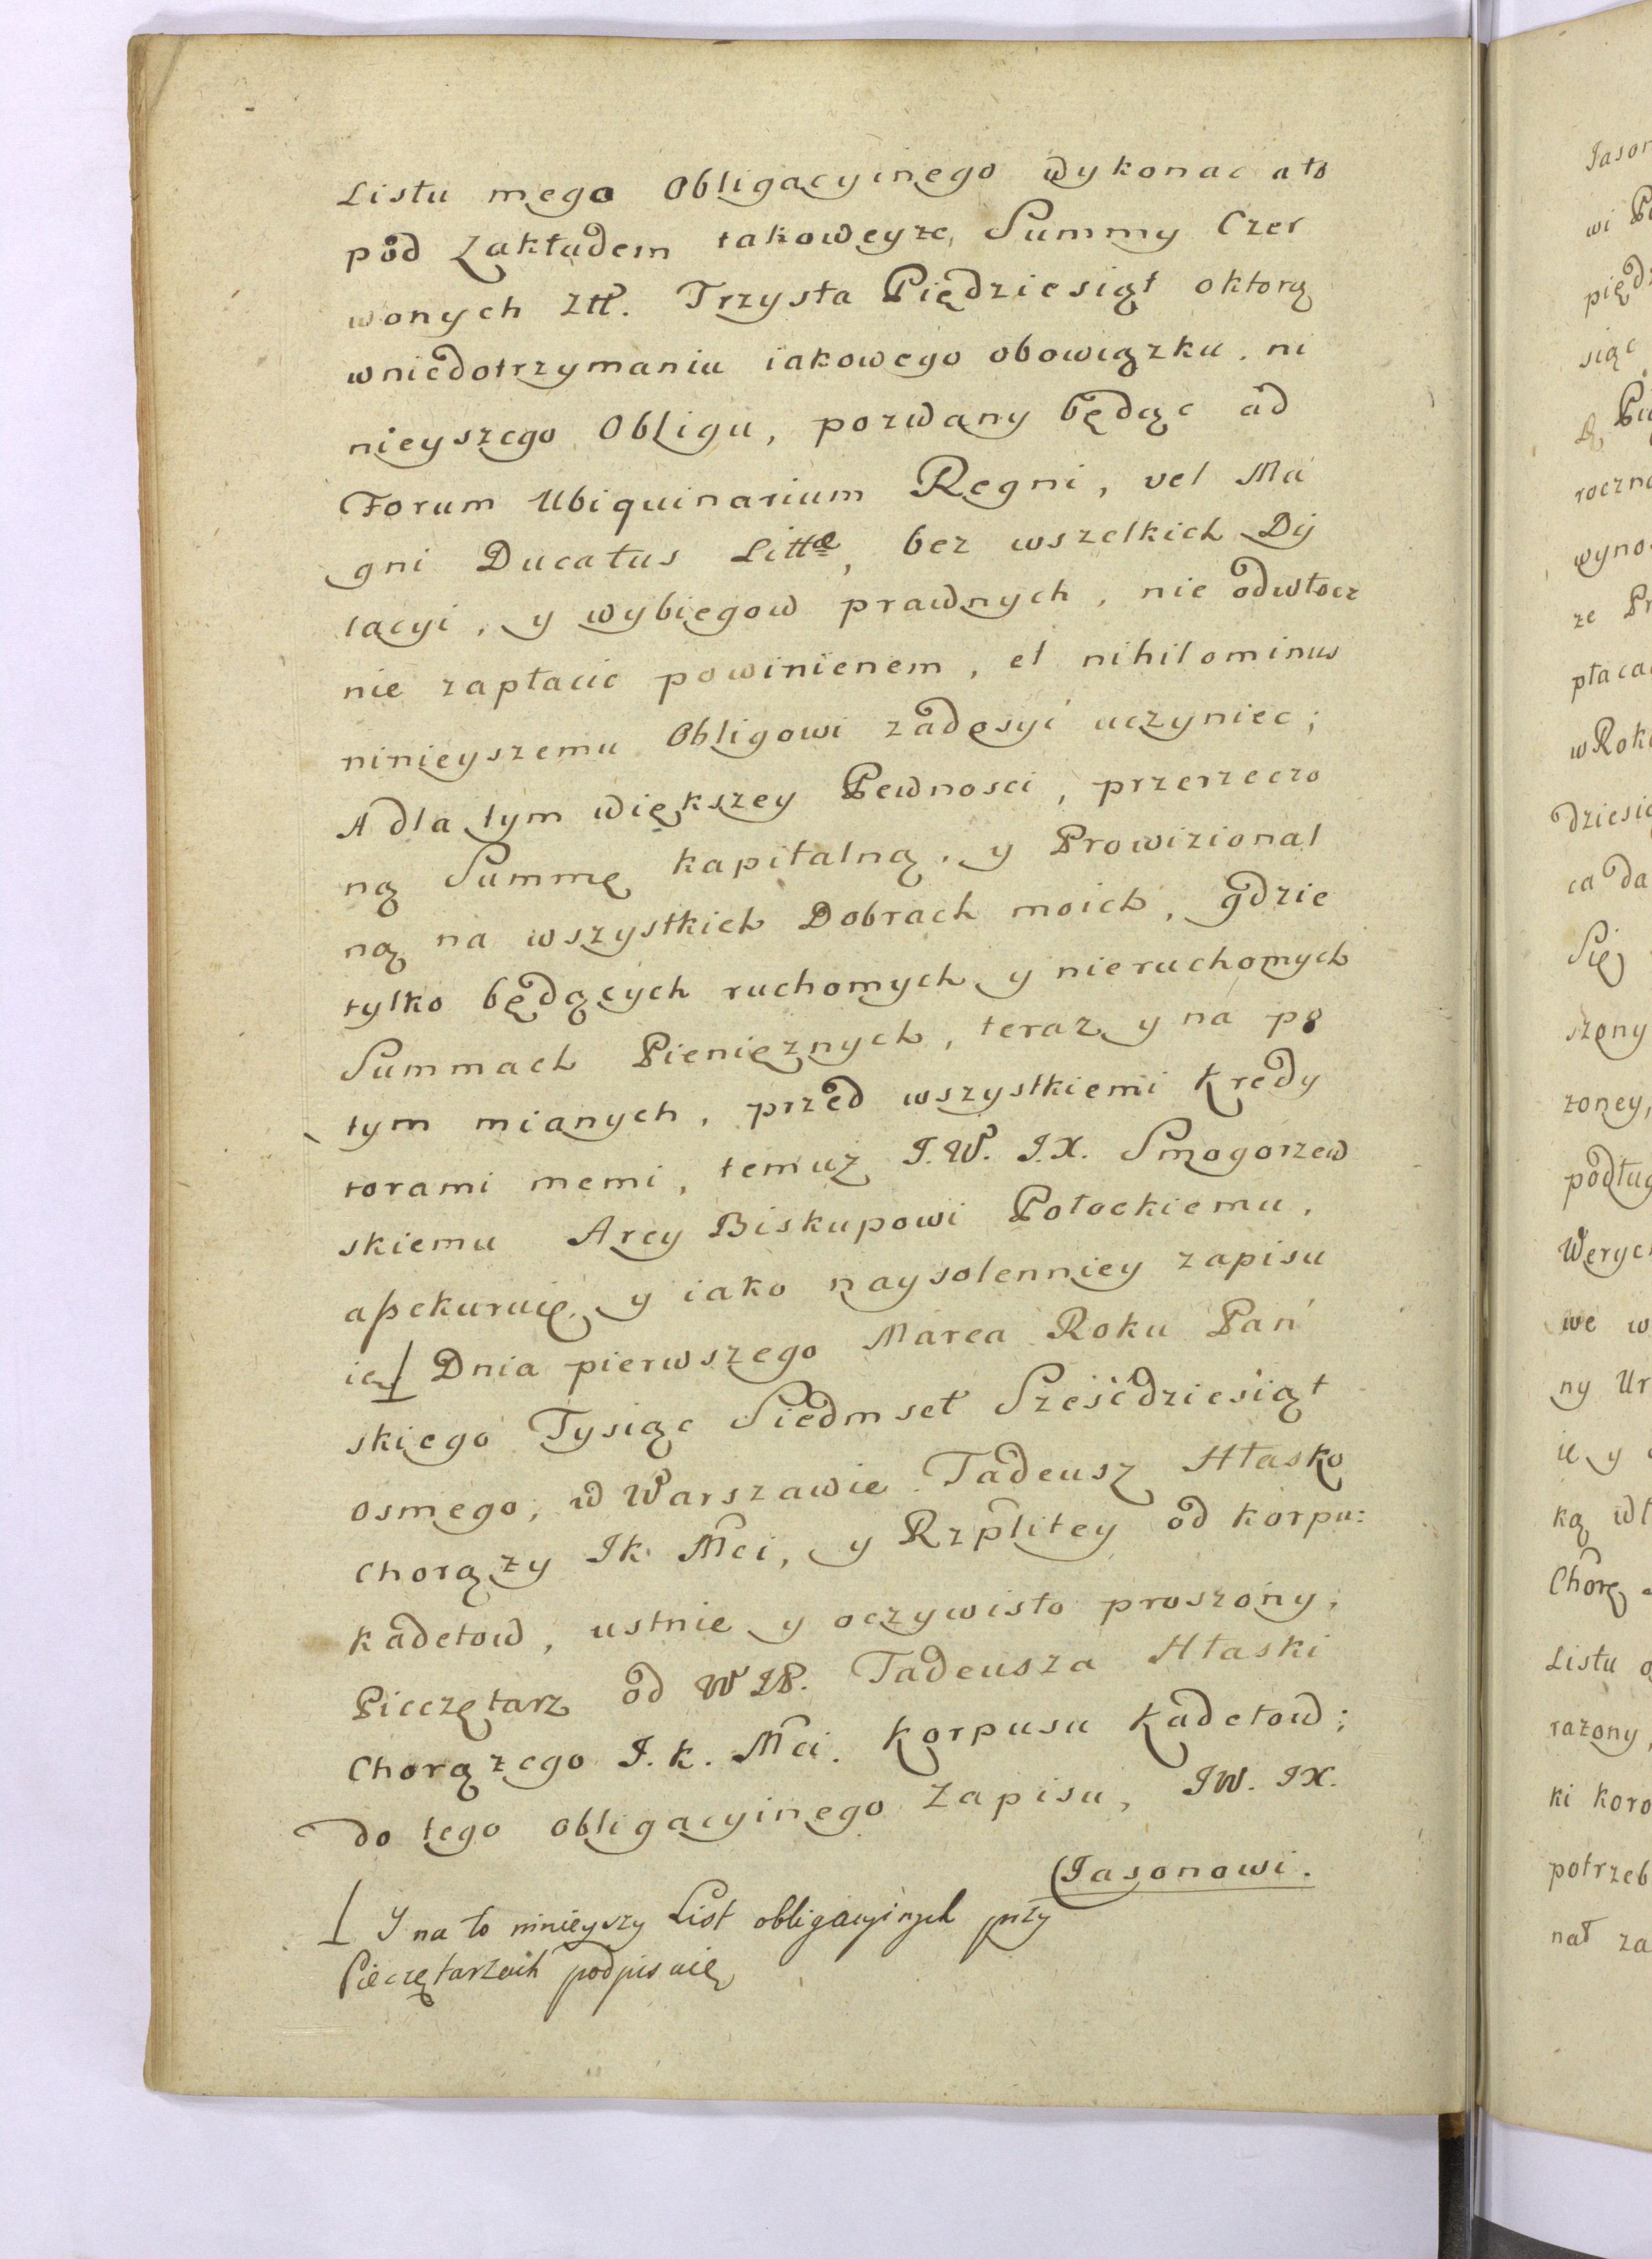 Listu mego Obligacyinego wykonac ato
pod Zakładem takoweyze, Summy Czer
wonych Ztł. Trzysta Piędziesiąt oktorą
wniedotrzymaniu iakowego obowiązku. ni
nieyszego Obligu, pozwany będąc ad
Forum Ubiquinarium Regni, vel Ma
gni Ducatus Littæ, bez wszelkich Dy
lacyi, y wybiegow prawnych, nie odwłocz
nie zapłacic powinienem, et nihilominus
ninieyszemu Obligowi zadosyć uczyniec;
A dla tym większey Pewnosci, przerzeczo
ną Summę kapitalną, y Prowizional
ną na wszystkich Dobrach moich, gdzie
tylko będących ruchomych y nieruchomych
Summach Pienięznych, teraz y na po
tym mianych, przed wszystkiemi kredy
torami memi, temuz J.W. J.X. Smogorzew
skiemu Arcy Biskupowi Połockiemu,
aßekuruię, y iako naysolenniey zapisu
ię Dnia pierwszego Marca Roku Pań
skiego Tysiąc Siedmset Sześćdziesiąt
osmego, w Warszawie. Tadeusz Hłasko
Chorązy Jk Mci, y Rzplitey od korpu:
kadetow, ustnie y oczywisto proszony,
Pieczętarz od W JP. Tadeusza Hłaski
Chorązego J. k. Mci. korpusu kadetow;
do tego obligacyinego Zapisu, JW. JX.
Jasonowi.
Y na to ninieyszy List obligacyinych przy
Pieczętarzach podpisuię
Jason
wi
pięd
siąc
roczn
wyno
ze Pr
płaca
wRok
dziesią
ca da
Się
szony
zoney,
podług
Werych
we w
ny Ur
ie y
ką wł
Chorę
Listu o
razony,
ki koro
potrzeb
nał za